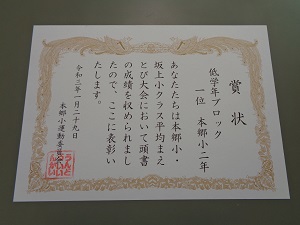 賞状
低学年ブロック
一位 本郷小二年
あなたたちは本郷小・
坂上小クラス平均まえ
とび大会において頭書
の成績を収められまし
たので、ここに表彰い
たします。
令和三年一月二十九日
本郷小運動委員会